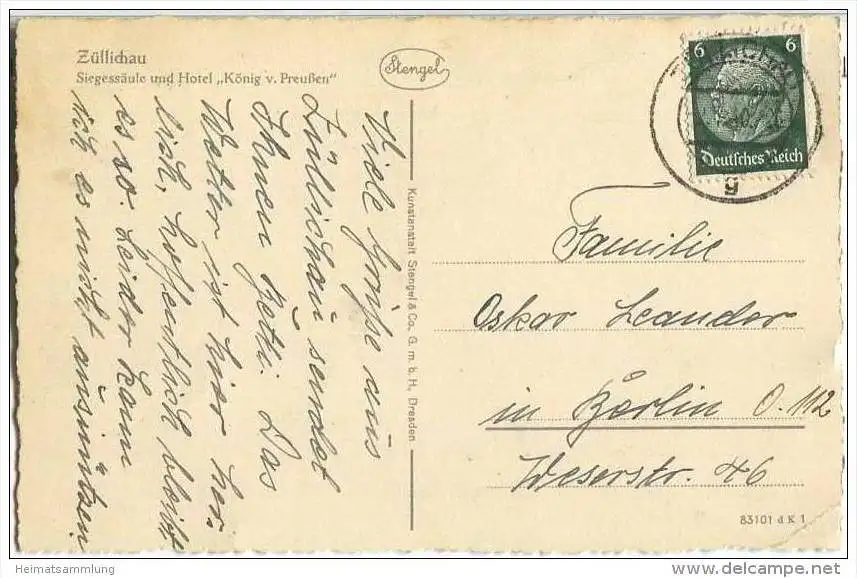 Züllichau
Siegessäule und Hotel „König v. Preußen“
Stengel
Viele Grüße aus
Züllichau sendet
Ihnen Hetti. Das
Wetter ist hier herr-
lich, hoffentlich bleibt
es so. Leider kann
ich es nicht ausnützen.
Kunstanstalt Stengel & Co. G. m. b. H., Dresden
6 6
Deutsches Reich
g
Familie
Oskar Leander
in Berlin O. 112
Weserstr. 46
83101 d K 1
Heimatsammlung
www.delcampe.net